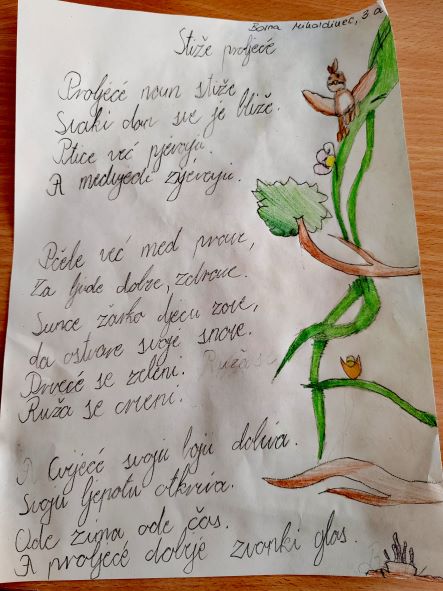 Borna Mikoldinec, 3 a
Stiže proljeće
Proljeće nam stiže
Svaki dan sve je bliže.
Ptice već pjevaju.
A medvjedi zijevaju.
Pčele već med prave,
za ljude dobre, zdrave.
Sunce žarko djecu zove,
da ostvare svoje snove.
Drveće se zeleni. Ruža se
Ruža se crveni.
A Cvijeće svoju boju dobiva.
Svoju ljepotu otkriva.
Ode zima ode čas.
A proljeće dobije zvonki glas.